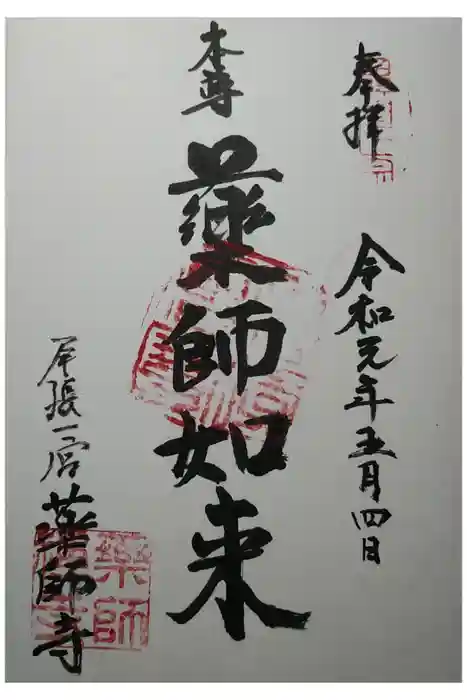 奉拝
令和元年五月四日
本尊
藥師如来
尾張一宮
薬師寺